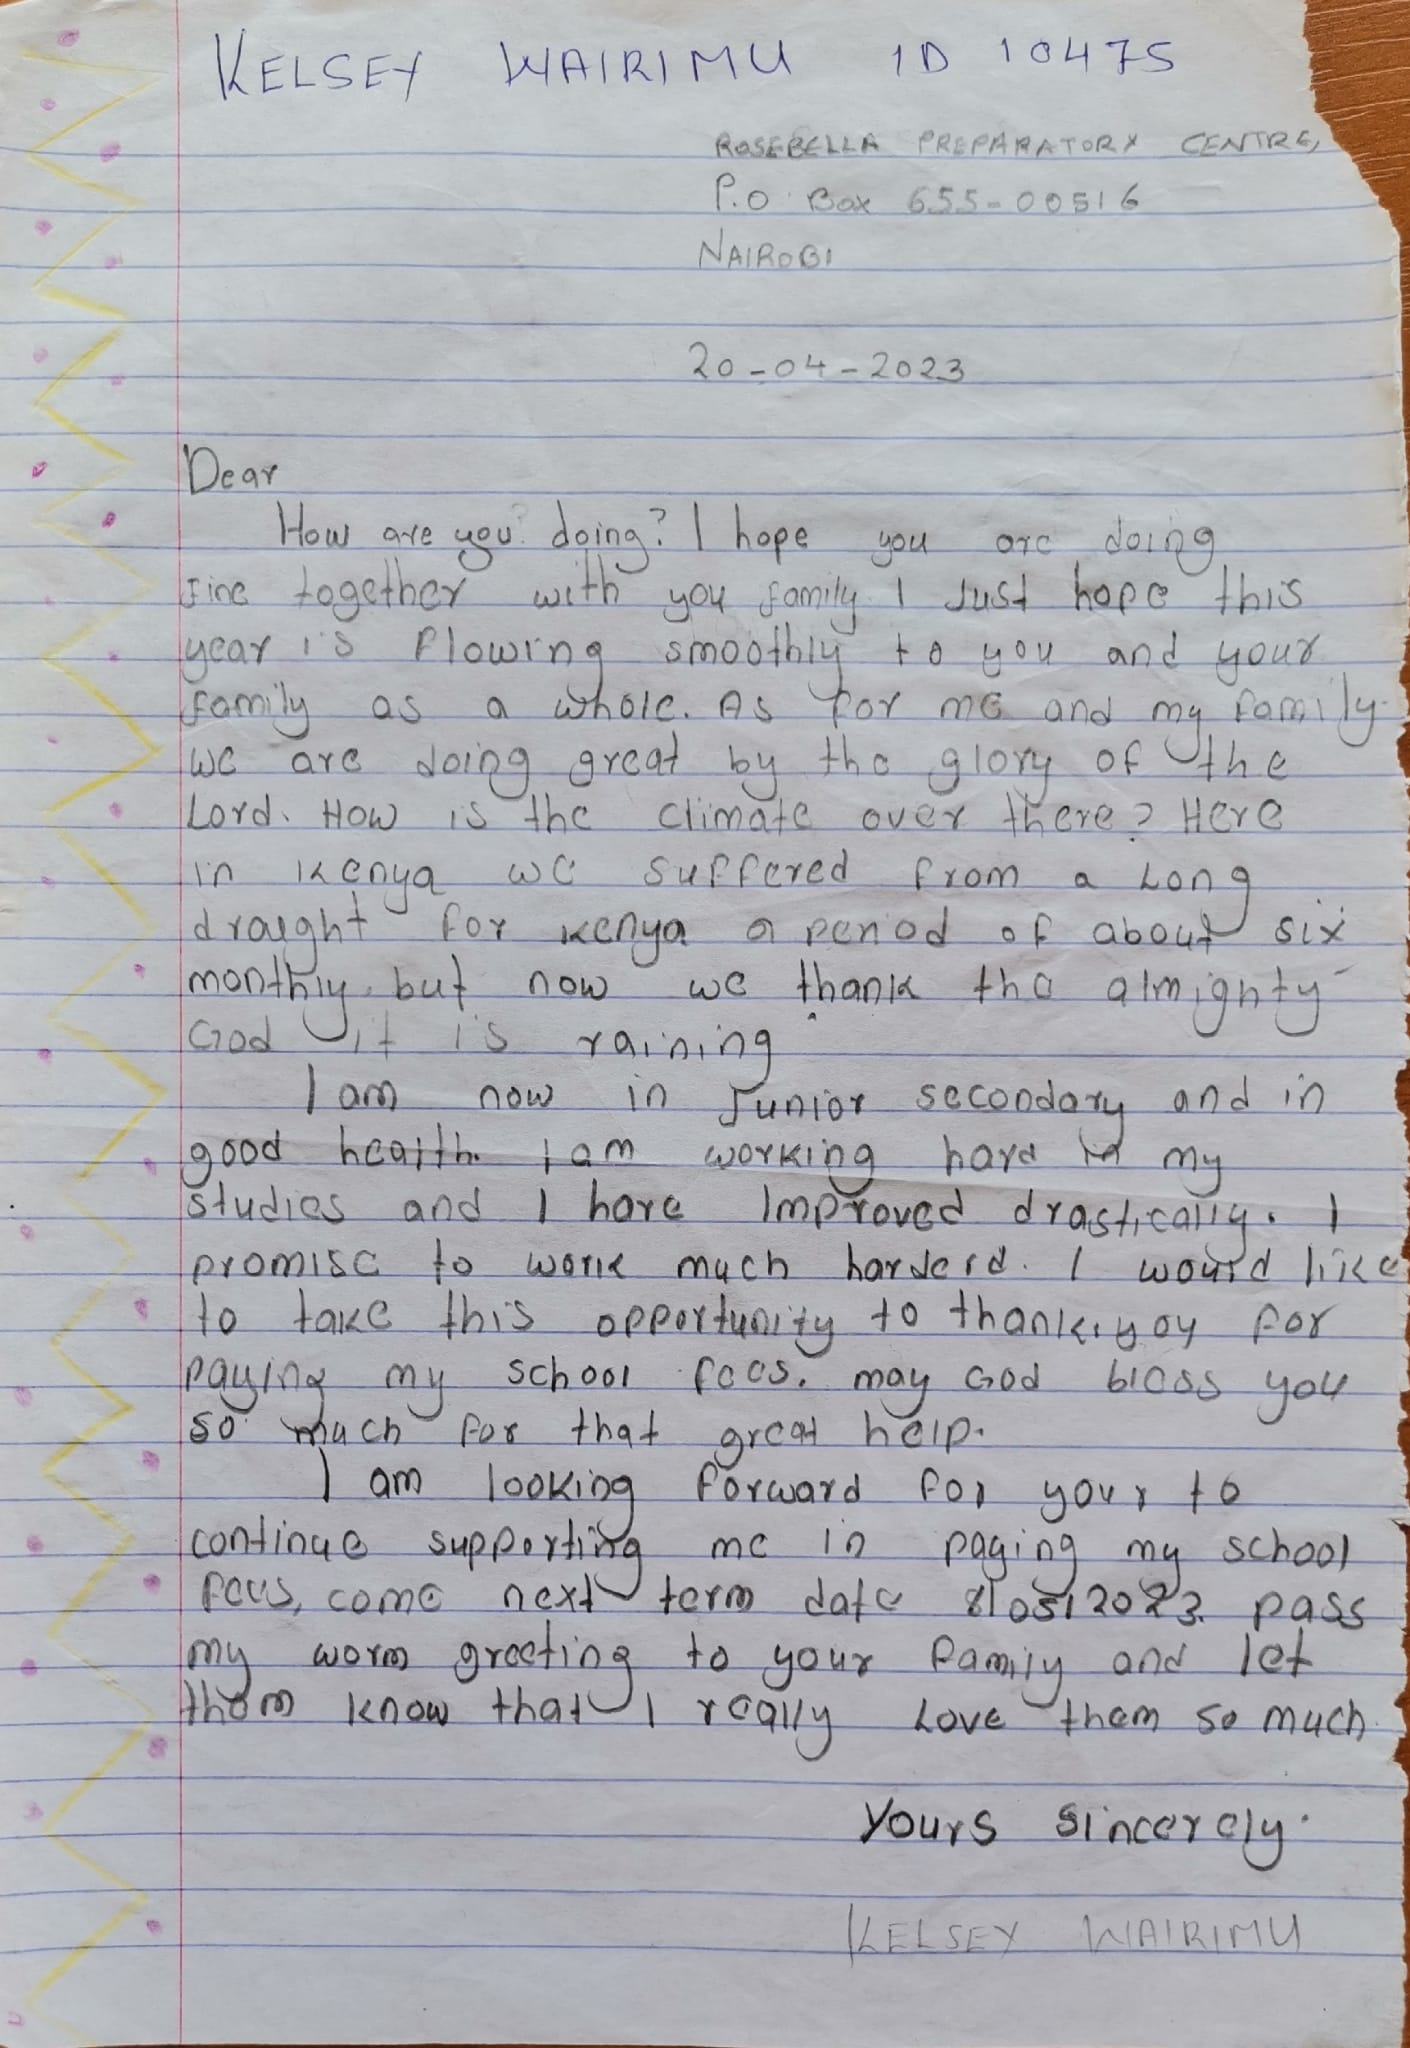 KELSEY WAIRIMU ID 10475
ROSEBELLA PREPARATORY CENTRE,
P.O Box 655-00516
NAIROBI
20-04-2023
Dear
How are you? doing? I hope you are doing
fine together with you family. I Just hope this
year is flowing smoothly to you and your
family as a whole. As for me and my family.
we are doing great by the glory of the
Lord. How is the climate over there? Here
in Kenya we suffered from a Long
draught for kenya a period of about six
monthly. but now we thank the almighty
God it is raining
I am now in Junior secondary and in
good health. I am working hard in my
studies and I have Improved drastically. I
promise to work much harderd. I would like
to take this opportunity to thank, you for
paying my school fees. may God bless you
so much for that great help.
I am looking forward for your to
continue supporting me in paying my school
fees, come next term date 8/05/2023. pass
my worm greeting to your family and let
them know that I really Love them so much.
Yours sincerely.
KELSEY WAIRIMU